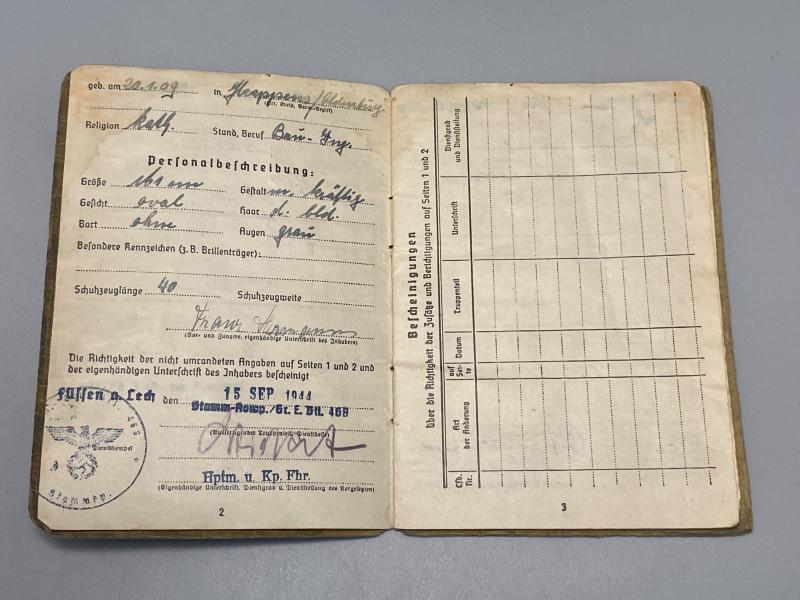 geb. am 20.1.09 in Heppens/Oldenburg
(Ort, Kreis, Verw.-Bezirk)
Religion kath. Stand, Beruf Bau-Ing.
Personalbeschreibung:
Größe cm Gestalt m. kräftig
Gesicht oval Haar d. bld.
Bart ohne Augen grau
Besondere Kennzeichen (z.B. Brillenträger):
Schuhzeuglänge 40 Schuhzeugweite
Franz
(Vor- und Zuname, eigenhändige Unterschrift des Inhabers)
Die Richtigkeit der nicht umrandeten Angaben auf Seiten 1 und 2 und
der eigenhändigen Unterschrift des Inhabers bescheinigt
Füssen a. Lech den 15 SEP 1944
Stamm-Komp./Gr. E. Btl. 468
Dienststempel
Hptm. u. Kp. Fhr.
(Eigenhändige Unterschrift, Dienstgrad u. Dienststellung des Vorgesetzten)
2
Bescheinigungen
über die Richtigkeit der Zusätze und Berichtigungen auf Seiten 1 und 2
Lfd. Nr.
Art der Änderung
auf Seite
Datum
Truppenteil
Unterschrift
Dienstgrad und Dienststellung
3